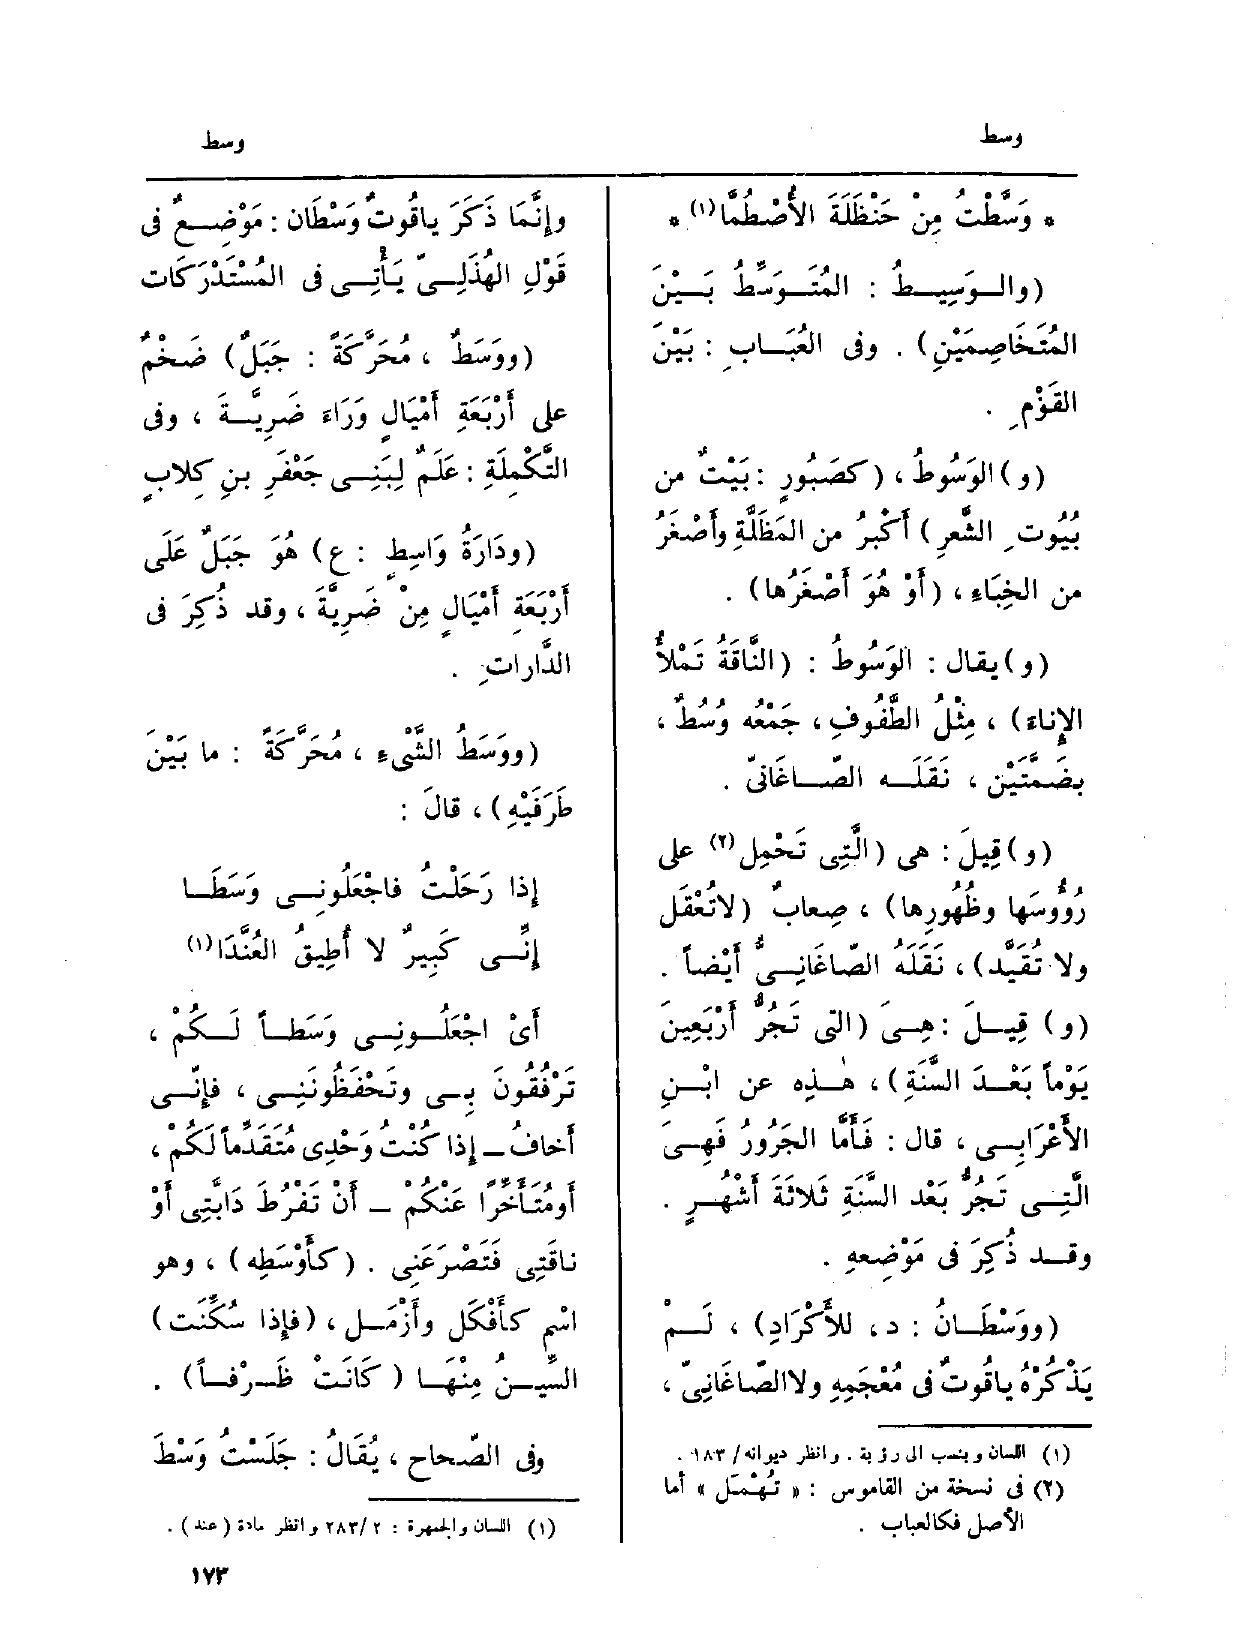 وسط
وسط
* وَسَّطْتُ مِنْ حَنْظَلَةَ الأُصْطُمَّا(١) *
(والوَسِيطُ : المُتَوَسِّطُ بَيْنَ
المُتَخَاصِمَيْنِ) . وفى العُبَابِ : بَيْنَ
القَوْمِ .
(و) الوَسُوطُ ، (كصَبُورٍ : بَيْتٌ من
بُيُوتِ الشَّعرِ) أَكْبَرُ من المَظَلَّةِ وأَصْغَرُ
من الخِبَاءِ ، (أَوْ هُوَ أَصْغَرُها) .
(و) يقال : الوَسُوطُ : (النَّاقَةُ تَمْلأُ
الإِناءَ) ، مِثْلُ الطَّفُوفِ ، جَمْعُه وُسُطٌ ،
بضَمَّتَيْن ، نَقَلَه الصّاغَانىّ .
(و) قِيلَ : هى (الَّتِى تَحْمِل(٢) على
رُؤُوسَها وظُهُورِها) ، صِعابٌ (لاتُعْقَل
ولا تُقَيَّد) ، نَقَلَهُ الصّاغَانِىُّ أَيْضاً .
(و) قِيلَ : هِىَ (التى تَجُرُّ أَرْبَعِينَ
يَوْماً بَعْدَ السَّنَةِ) ، هٰذِه عن ابْنِ
الأَعْرَابِى ، قال : فَأَمَّا الجَرُورُ فَهِىَ
الَّتِى تَجُرُّ بَعْد السَّنَةِ ثَلاثَةَ أَشْهُرٍ .
وقد ذُكِرَ فى مَوْضِعِهِ .
(ووَسْطَانُ : د ، للأَكْرَادِ) ، لَمْ
يَذْكُرْهُ ياقُوتٌ فى مُعْجَمِهِ ولاالصّاغَانِىّ ،
(١) اللسان وينسب الى رؤبة . وانظر ديوانه/ ١٨٣ .
(٢) فى نسخة من القاموس : « تُهْمَل » أما
الأصل فكالعباب .
وإِنَّمَا ذَكَرَ ياقُوتٌ وَسْطَان : مَوْضِعٌ فى
قَوْلِ الهُذَلِىّ يَأْتِى فى المُسْتَدْرَكَات
(ووَسَطٌ ، مُحَرَّكَةً : جَبَلٌ) ضَخْمٌ
على أَرْبَعَةِ أَمْيَالٍ وَرَاءَ ضَرِيَّةَ ، وفى
التَّكْمِلَةِ : عَلَمٌ لِبَنِى جَعْفَرِ بنِ كِلابٍ
(ودَارَةُ وَاسِطٍ : ع) هُوَ جَبَلٌ عَلَى
أَرْبَعَةِ أَمْيَالٍ مِنْ ضَرِيَّةَ ، وقد ذُكِرَ فى
الدَّاراتِ .
(ووَسَطُ الشَّىْءِ ، مُحَرَّكَةً : ما بَيْنَ
طَرَفَيْهِ) ، قالَ :
إِذا رَحَلْتُ فاجْعَلُونِى وَسَطَا
إِنِّى كَبِيرٌ لا أُطِيقُ العُنَّدَا(١)
أَىْ اجْعَلُونِى وَسَطاً لَكُمْ ،
تَرْفُقُونَ بِى وتَحْفَظُونَنِى ، فإِنّى
أَخافُ - إِذا كُنْتُ وَحْدِى مُتَقَدِّماً لَكُم ،
أَومُتَأَخِّرًا عَنْكُم - أَنْ تَفْرُطَ دَابَّتِى أَوْ
ناقَتِى فَتَصْرَعَنِى . (كأَوْسَطِه) ، وهو
اسْم كأَفْكَل وأَزْمَل ، (فإِذا سُكِّنَت)
السِّينُ مِنْهَا (كَانَتْ ظَرْفاً) .
وفى الصّحاح ، يُقَالُ : جَلَسْتُ وَسْطَ
(١) اللسان والجمهرة : ٢ /٢٨٣ وانظر مادة (عند) .
١٧٣